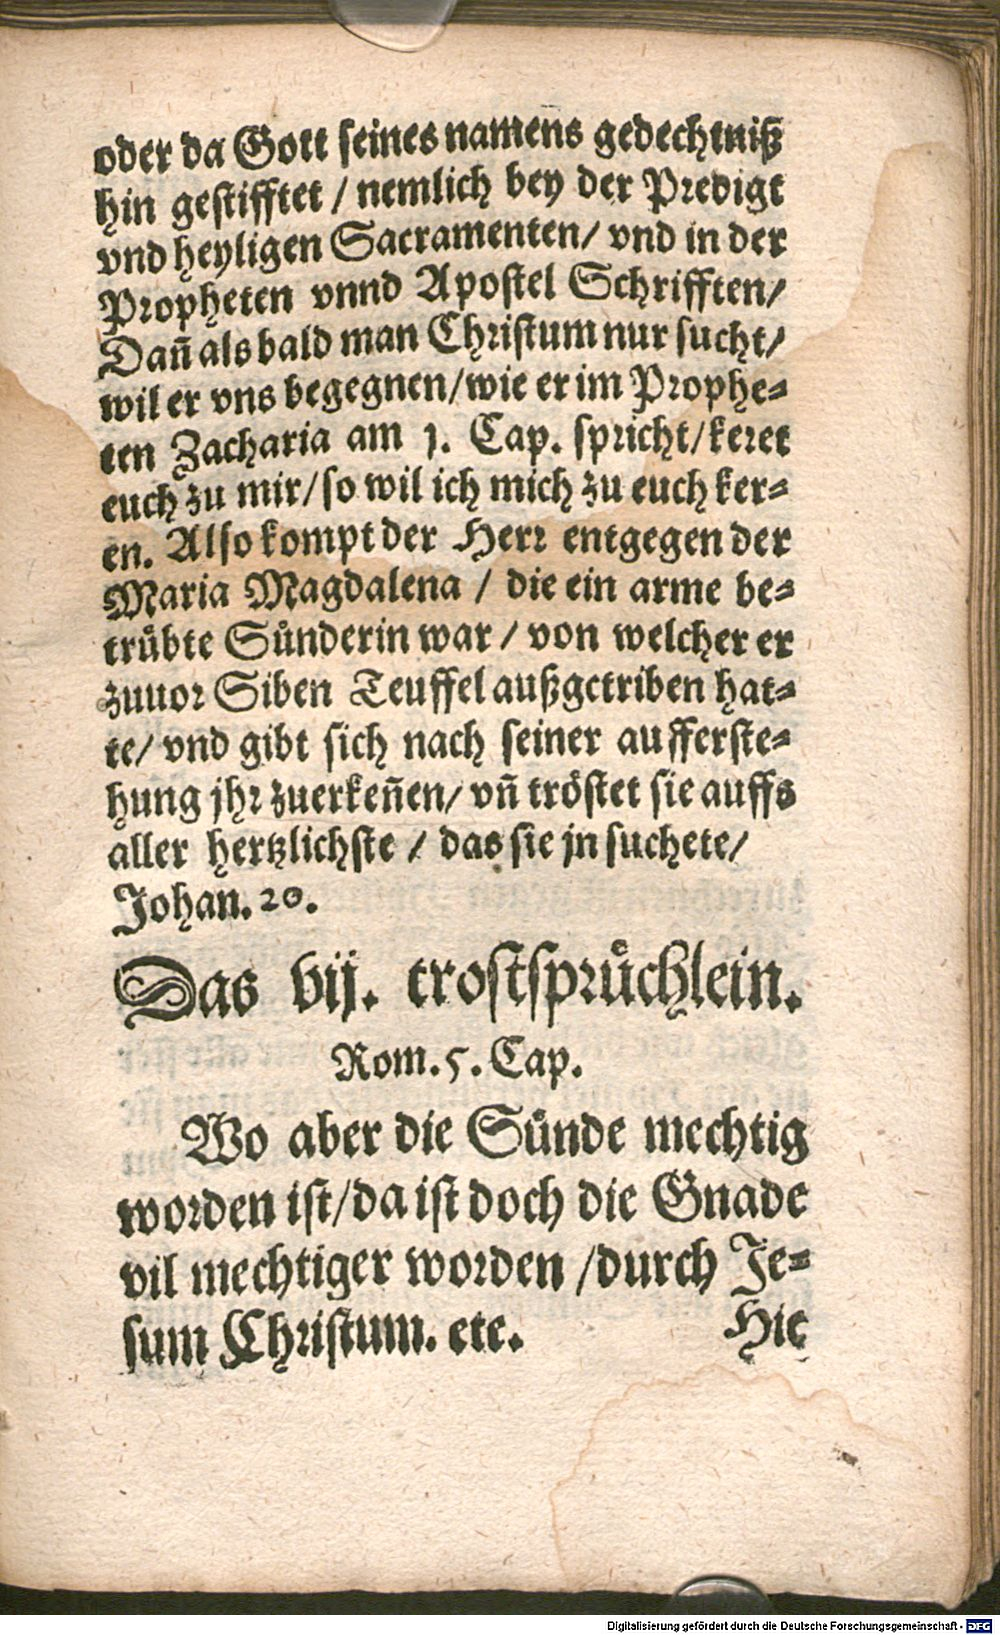 oder da Gott seines namens gedechtniß
hin gestifftet / nemlich bey der Predigt
vnd heyligen Sacramenten/ vnd in der
Propheten vnnd Apostel Schrifften/
Dañ als bald man Christum nur sucht/
wil er vns begegnen/ wie er im Prophe-
ten Zacharia am 1. Cap. spricht/ keret
euch zu mir/ so wil ich mich zu euch ker-
en. Also kompt der Herr entgegen der
Maria Magdalena / die ein arme be-
trübte Sünderin war / von welcher er
zuuor Siben Teuffel außgetriben hat-
te/ vnd gibt sich nach seiner aufferste-
hung jhr zuerkeñen/ vñ tröstet sie auffs
aller hertzlichste / das sie jn suchete/
Johan. 20.
Das vij. trostsprüchlein.
Rom. 5. Cap.
Wo aber die Sünde mechtig
worden ist/ da ist doch die Gnade
vil mechtiger worden / durch Je-
sum Christum. etc.
Hie
Digitalisierung gefördert durch die Deutsche Forschungsgemeinschaft - DFG